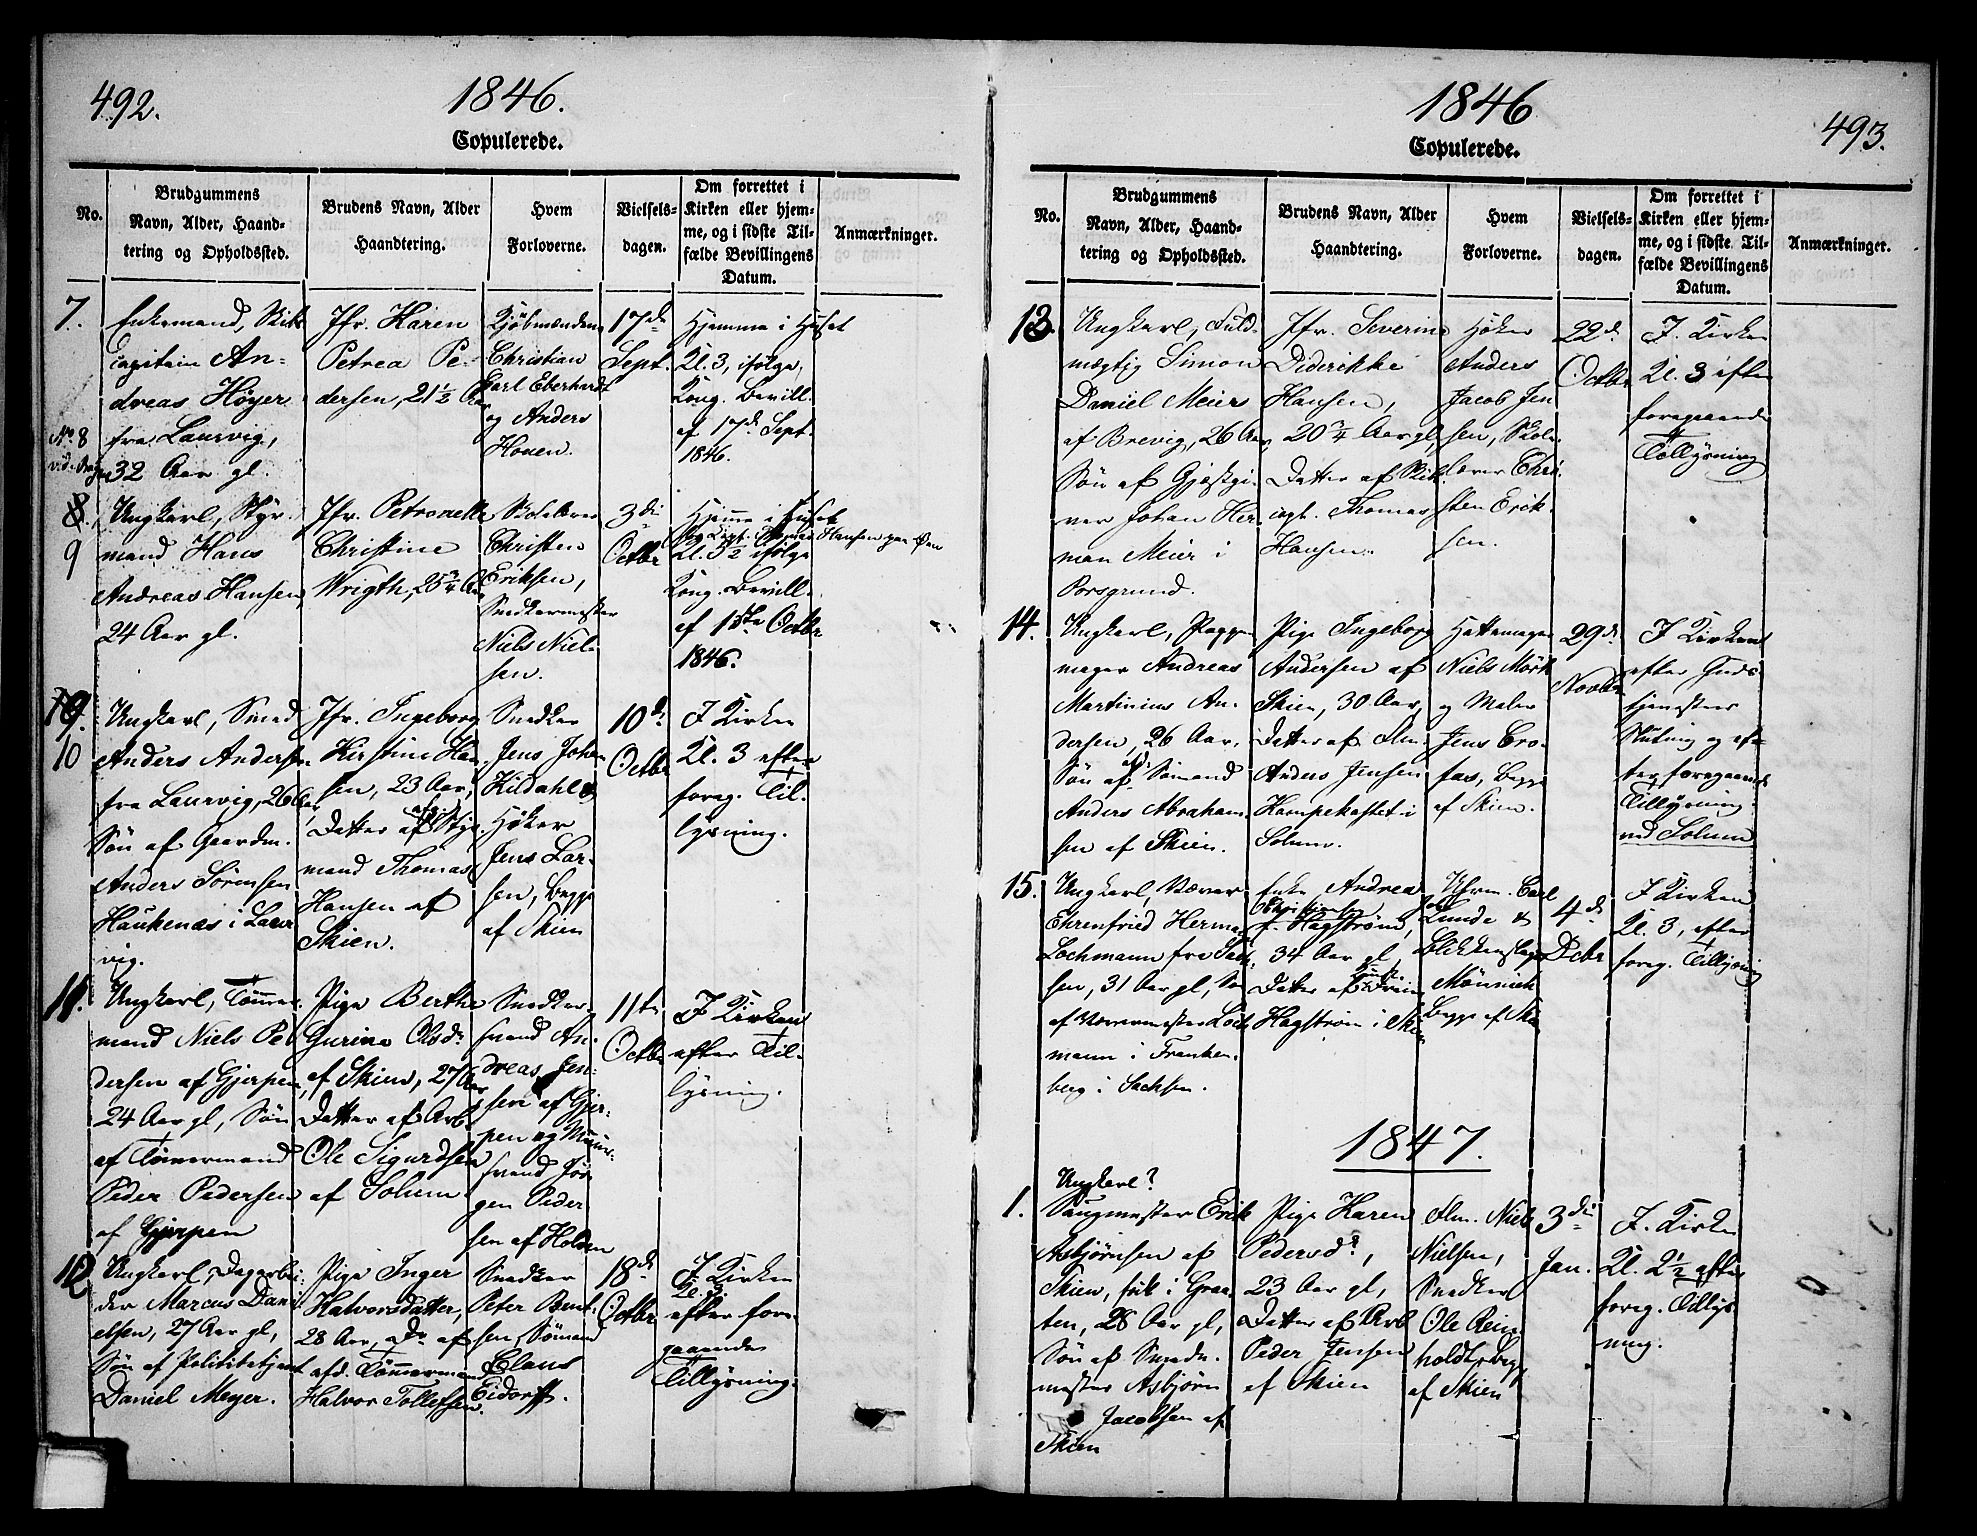 492.
1846.
Copulerede.
No.
Brudgummens
Navn, Alder, Haand-
tering og Opholdssted.
Brudens Navn, Alder
Haandtering.
Hvem
Forloverne.
Vielsels-
dagen.
Om forrettet i
Kirken eller hjem-
me, og i sidste Til-
fælde Bevillingens
Datum.
Anmærkninger.
7.
Enkemand, Skibs
capitain An-
dreas Höyer
fra Laurvig,
32 Aar gl.
Jfr. Karen
Petrea Pe-
dersen, 21½ Aar
Kjöbmændene
Christian
Carl Eberhardt
og Anders
Houen.
17de
Sept.
Hjemme i Huset
Kl. 3, ifölge
Kong. Bevill.
af 17de Sept.
1846.
No 8
8.
9
Ungkarl, Styr
mand Hans
Andreas Hansen,
24 Aar gl.
Jfr. Petronelle
Christine
Wrigth, 25¾ Aar
Skolelærer
Christen
Eriksen,
Snedkermester
Niels Niel-
sen.
3die
Octbr
Hjemme i Huset
hos Capt. Thomas Hansen paa
Kl. 3½ ifölge
Kong. Bevill.
af 1ste Octbr
1846.
9.
10
Ungkarl, Smed
Anders Andersen
fra Laurvig, 26 Aar,
Sön af Gaardm.
Anders Sörensen
Haukenæs i Laur
vig.
Jfr. Ingeborg
Kirstine Han
sen, 23 Aar,
Datter af afd. Styr
mand Thomas
Hansen af
Skien.
Snedker
Jens Johan
Kildahl &
Höker
Jens Lar-
sen, begge
af Skien
10de
Octbr
I Kirken
Kl. 3 efter
foreg. Til-
lysning.
11.
Ungkarl, Tömmer
mand Niels Pe
dersen af Gjerpen,
24 Aar gl, Sön
af Tömmermand
Peder Pedersen
af Gjerpen
Pige Berthe
Gurine Olsdr
af Skien, 27 Aar
Datter af Arb
Ole Sigurdsen
af Solum
Snedker
svend An-
dreas Jen-
sen af Gjer-
pen og Muur-
svend Jör
gen Peder
sen af Holden
11te
Octbr
I Kirken
efter Til-
lysning.
12
Ungkarl, Dagarbei
der Marcus Dani
elsen, 27 Aar gl,
Sön af Polititetjent
Daniel Meyer.
Pige Inger
Halvorsdatter,
28 Aar, Dr af
afd. Tömmermand
Halvor Tollefsen.
Snedker
Peter Bent-
sen, Sömand
Claus
Eidorff.
18de
Octbr
I Kirken
Kl. 3
efter fore
gaaende
Tillysning.
1846
493.
Copulerede.
No.
Brudgummens
Navn, Alder, Haand-
tering og Opholdssted.
Brudens Navn, Alder
Haandtering.
Hvem
Forloverne.
Vielsels-
dagen.
Om forrettet i
Kirken eller hjem-
me, og i sidste Til-
fælde Bevillingens
Datum.
Anmærkninger.
13.
Ungkarl, Fuld-
mægtig Simon
Daniel Meier
af Brevig, 26 Aar,
Sön af Gjæstgi-
ver Johan Her
man Meier i
Porsgrund.
Jfr. Severine
Diderikke
Hansen,
20¾ Aar gl,
Datter af Skibs
capt. Thomas
Hansen.
Höker
Anders
Jacob Jen
sen, Skole
lærer Chri-
sten Erik-
sen.
22de
Octbr
I Kirken
Kl. 3 efter
foregaaende
Tillysning
14.
Ungkarl, Poppe
mager Andreas
Martinius An-
dersen, 26 Aar,
Sön af afd. Sömand
Anders Abraham
sen af Skien.
Pige Ingeborg
Andersen af
Skien, 30 Aar,
Datter af Flm.
Anders Jensen
Hampekastet i
Solum.
Hattemager
Niels Mörk
og Maler
Jens Cro-
fas, begge
af Skien.
29de
Novbr
I Kirken
efter Guds
tjenestens
Slutning og ef-
ter foregaaende
Tillysning
ved Solum
15.
Ungkarl, Væver
Ehrenfried Herman
Lochmann fra Sach
sen, 31 Aar gl, Sön
af Vævermester Loch
mann i Franken-
berg i Sachsen.
Enke Andrea
Christiansen
f. Hagström,
34 Aar gl
Datter af Svend
Hagström i Skien
Kfrm. Carl
Lunde &
Blikkenslager
Mönnich
begge af Skien
4de
Decbr
I Kirken
Kl. 3, efter
foreg. Tillysning
1847.
1.
Ungkarl?
Saugmester Erik
Asbjörnsen af
Skien, föd i Graa
ten, 28 Aar gl,
Sön af Smede-
mester Asbjörn
Jacobsen af
Skien
Pige Karen
Pedersdr,
23 Aar gl,
Datter af Arb
Peder Jensen
af Skien
Flm. Niels
Nielsen,
Snedker
Ole Rein
holdt, begge
af Skien
3die
Jan.
I Kirken
Kl. 2½ efter
foreg. Tillys
ning.